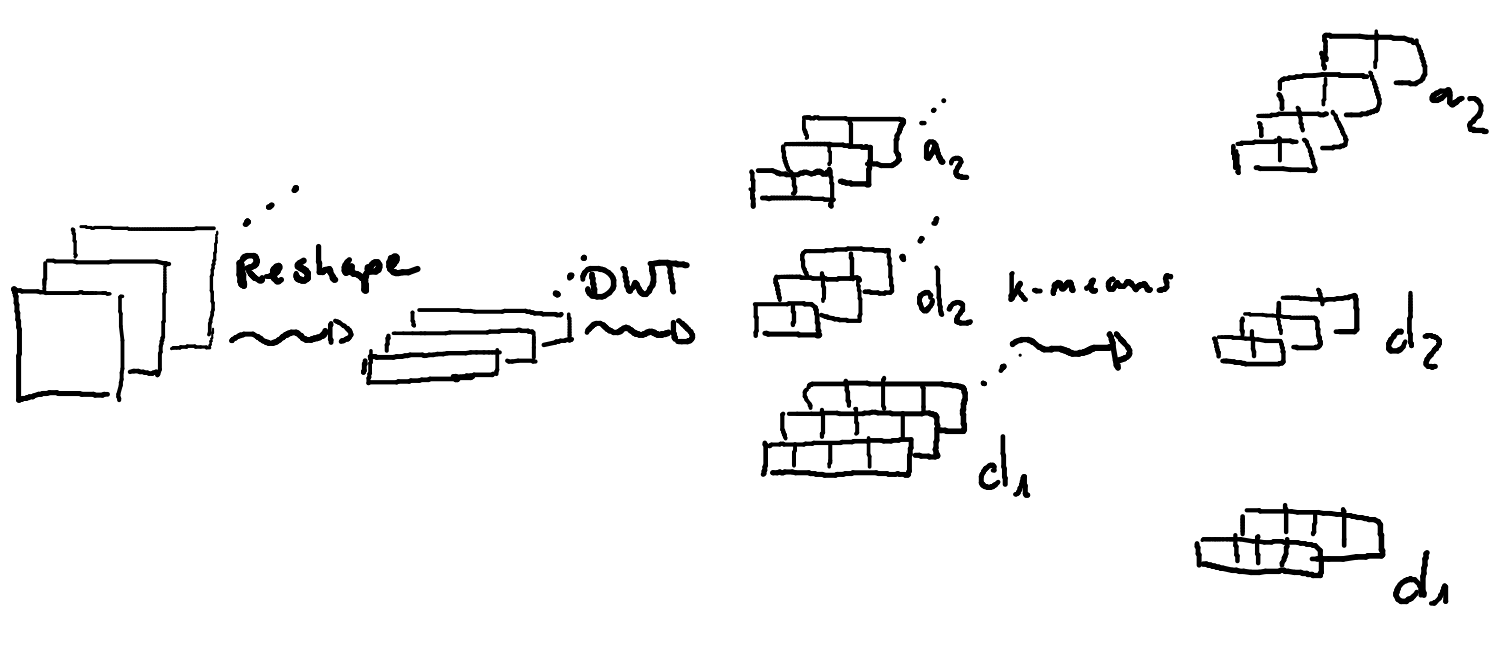 Reshape
DWT
a₂
d₂
d₁
k-means
a₂
d₂
d₁